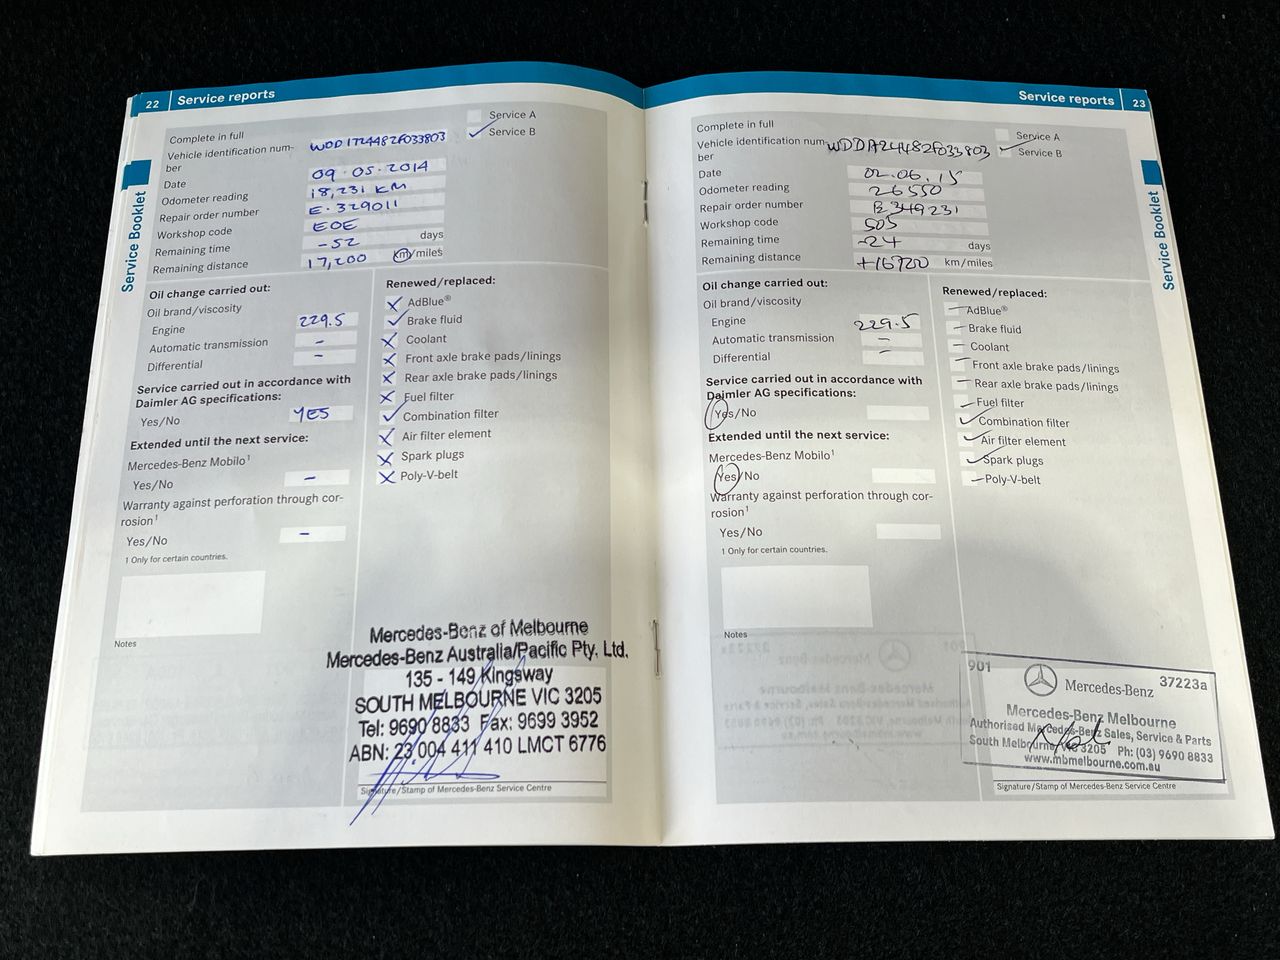 22 Service reports
Complete in full
Service A
Service B
Vehicle identification num-
ber
WDD1724482F033803
Date 09.05.2014
Odometer reading 18,231 KM
Repair order number E.329011
Workshop code EOE
Remaining time -52 days
Remaining distance 17,200 km/miles
Oil change carried out:
Oil brand/viscosity
Engine 229.5
Automatic transmission -
Differential -
Service carried out in accordance with
Daimler AG specifications:
Yes/No YES
Extended until the next service:
Mercedes-Benz Mobilo1
Yes/No -
Warranty against perforation through cor-
rosion1
Yes/No -
1 Only for certain countries.
Notes
Renewed/replaced:
AdBlue®
Brake fluid
Coolant
Front axle brake pads/linings
Rear axle brake pads/linings
Fuel filter
Combination filter
Air filter element
Spark plugs
Poly-V-belt
Mercedes-Benz of Melbourne
Mercedes-Benz Australia/Pacific Pty. Ltd.
135 - 149 Kingsway
SOUTH MELBOURNE VIC 3205
Tel: 9690 8833 Fax: 9699 3952
ABN: 23 004 411 410 LMCT 6776
Signature/Stamp of Mercedes-Benz Service Centre
Service Booklet
Service reports 23
Complete in full
Service A
Service B
Vehicle identification num-
ber
Date 02.06.15
Odometer reading 26550
Repair order number 349231
Workshop code 505
Remaining time -24 days
Remaining distance +16900 km/miles
Oil change carried out:
Oil brand/viscosity
Engine 229.5
Automatic transmission -
Differential -
Service carried out in accordance with
Daimler AG specifications:
Yes/No
Extended until the next service:
Mercedes-Benz Mobilo1
Yes/No
Warranty against perforation through cor-
rosion1
Yes/No
1 Only for certain countries.
Notes
Renewed/replaced:
AdBlue®
Brake fluid
Coolant
Front axle brake pads/linings
Rear axle brake pads/linings
Fuel filter
Combination filter
Air filter element
Spark plugs
Poly-V-belt
901 Mercedes-Benz 37223a
Mercedes-Benz Melbourne
Authorised Mercedes-Benz Sales, Service & Parts
South Melbourne, VIC 3205 Ph: (03) 9690 8833
www.mbmelbourne.com.au
Signature/Stamp of Mercedes-Benz Service Centre
Service Booklet